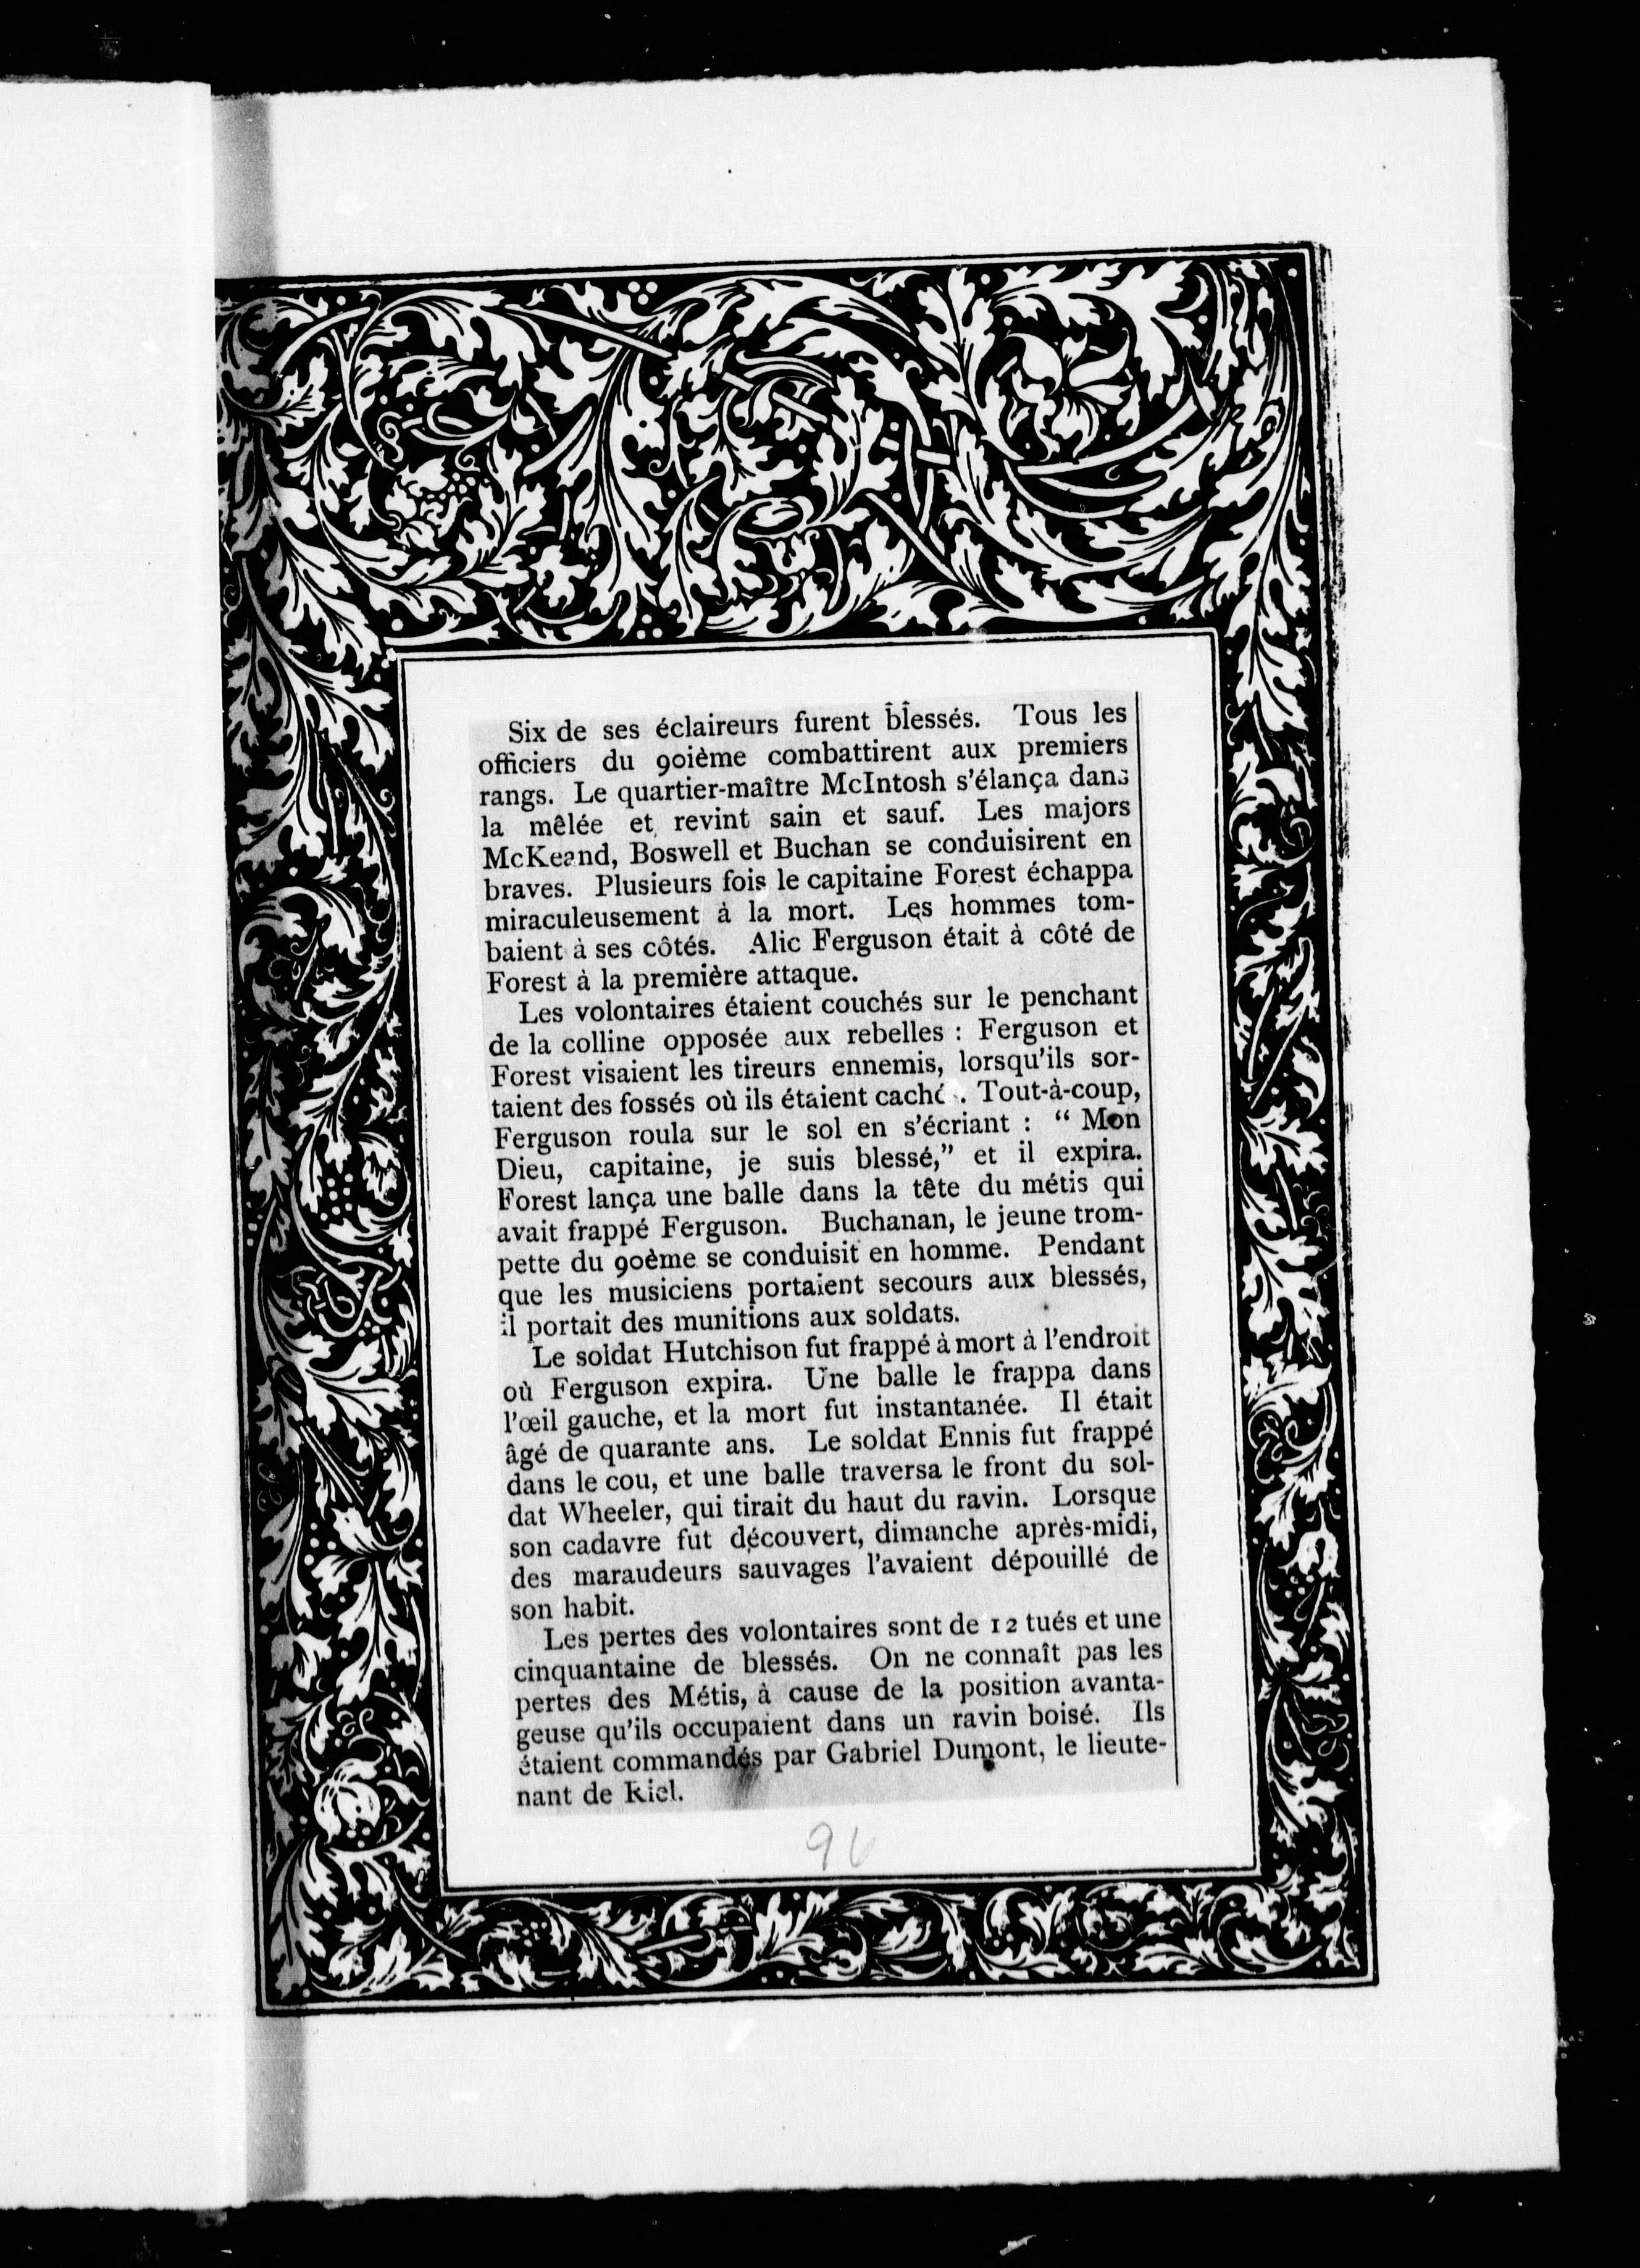 Six de ses éclaireurs furent blessés. Tous les
officiers du 90ième combattirent aux premiers
rangs. Le quartier-maître McIntosh s'élança dans
la mêlée et revint sain et sauf. Les majors
McKeand, Boswell et Buchan se conduisirent en
braves. Plusieurs fois le capitaine Forest échappa
miraculeusement à la mort. Les hommes tom-
baient à ses côtés. Alic Ferguson était à côté de
Forest à la première attaque.
Les volontaires étaient couchés sur le penchant
de la colline opposée aux rebelles : Ferguson et
Forest visaient les tireurs ennemis, lorsqu'ils sor-
taient des fossés où ils étaient cachés. Tout-à-coup,
Ferguson roula sur le sol en s'écriant : “ Mon
Dieu, capitaine, je suis blessé,” et il expira.
Forest lança une balle dans la tête du métis qui
avait frappé Ferguson. Buchanan, le jeune trom-
pette du 90ème se conduisit en homme. Pendant
que les musiciens portaient secours aux blessés,
il portait des munitions aux soldats.
Le soldat Hutchison fut frappé à mort à l'endroit
où Ferguson expira. Une balle le frappa dans
l'œil gauche, et la mort fut instantanée. Il était
âgé de quarante ans. Le soldat Ennis fut frappé
dans le cou, et une balle traversa le front du sol-
dat Wheeler, qui tirait du haut du ravin. Lorsque
son cadavre fut découvert, dimanche après-midi,
des maraudeurs sauvages l'avaient dépouillé de
son habit.
Les pertes des volontaires sont de 12 tués et une
cinquantaine de blessés. On ne connaît pas les
pertes des Métis, à cause de la position avanta-
geuse qu'ils occupaient dans un ravin boisé. Ils
étaient commandés par Gabriel Dumont, le lieute-
nant de Riel.
96